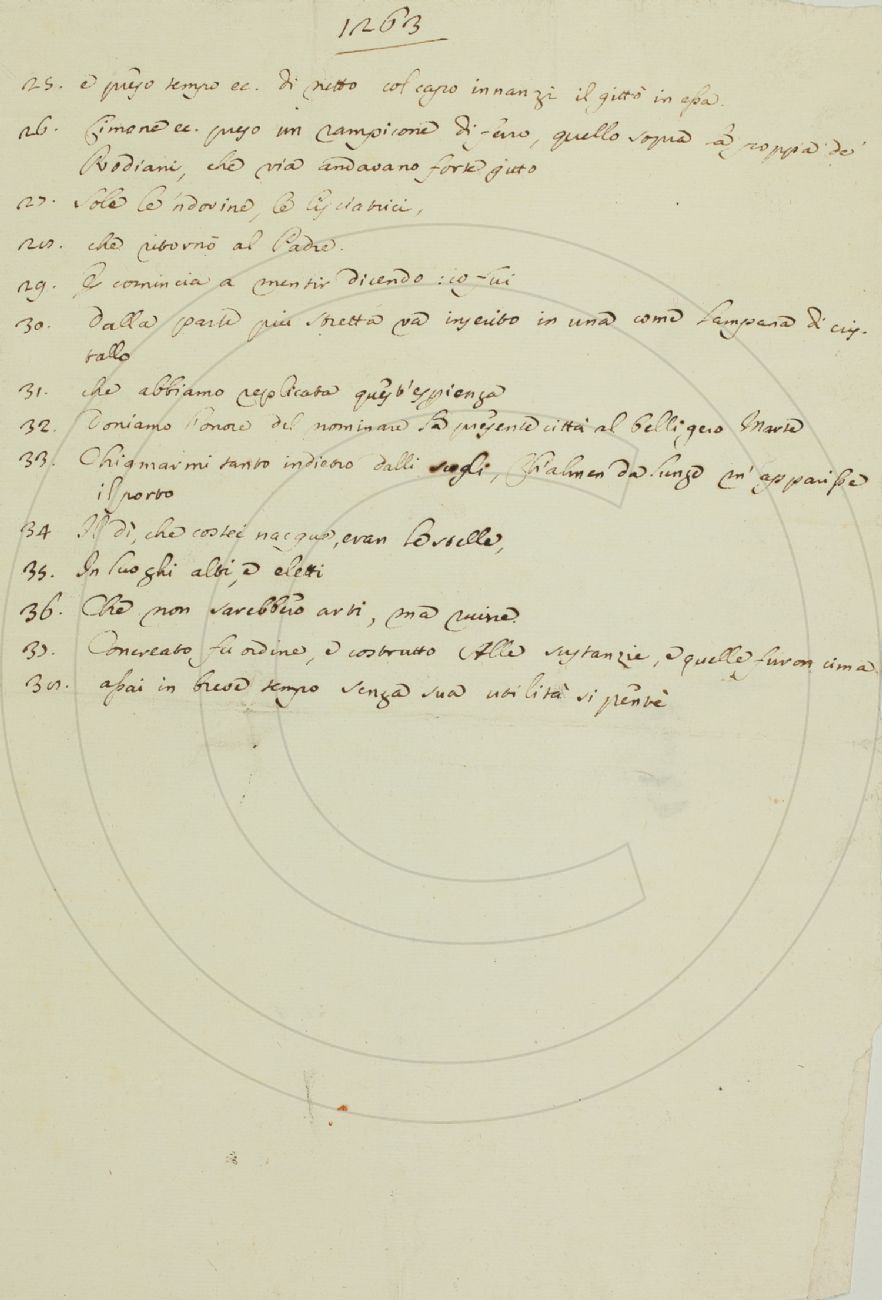 1263
25. e preso tempo ec. di netto col capo innanzi il gittò in essa.
26. Cimone ec. preso un rampicone di ferro, quello sopra la poppa de'
Rodiani, che via andavano forte gittò
27. sole le 'ndovine, le lisciatrici,
28. che ritornò al Padre.
29. E comincia a mentir dicendo: io fui
30. dalla parte più stretta va inserito in una come lampana di cris-
tallo
31. che abbiamo replicata quest'esperienza
32. Doniamo l'onore del nominare la presente città al belligero Marte
33. Chiamarmi tanto indietro dalli scogli, Ch'almen da lunge m'apparisse
il porto
34 Il dì, che costei nacque, eran le stelle,
35. In luoghi alti, e eletti
36. Che non sarebbero arti, ma ruine.
37. Concreato fu ordine, e costrutto Alle sustanzie, e quelle furon cima
38. assai in breve tempo senza sua utilità si pentè